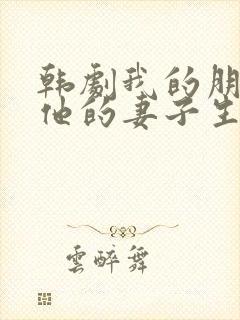 韩劇我的朋
他的妻子生
雲醉舞